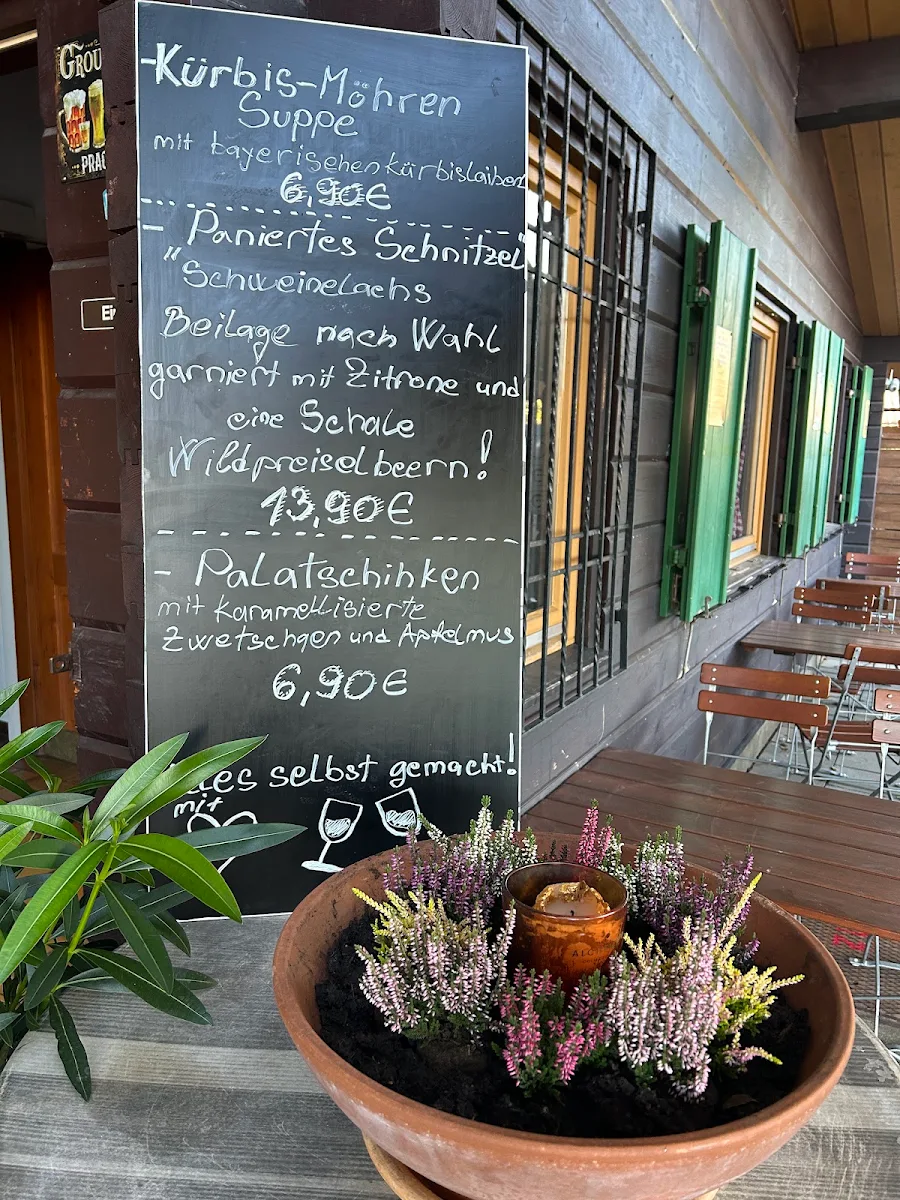 GROU
PRAG
Ei
-Kürbis-Möhren
Suppe
mit bayerischen kürbislaiben
6,90€
- Paniertes Schnitzel
"Schweinelachs
Beilage nach Wahl
garniert mit Zitrone und
eine Schale
Wildpreiselbeern!
13,90€
- Palatschinken
mit karamellisierte
Zwetschgen und Apfelmus
6,90€
selbst gemacht!
mit